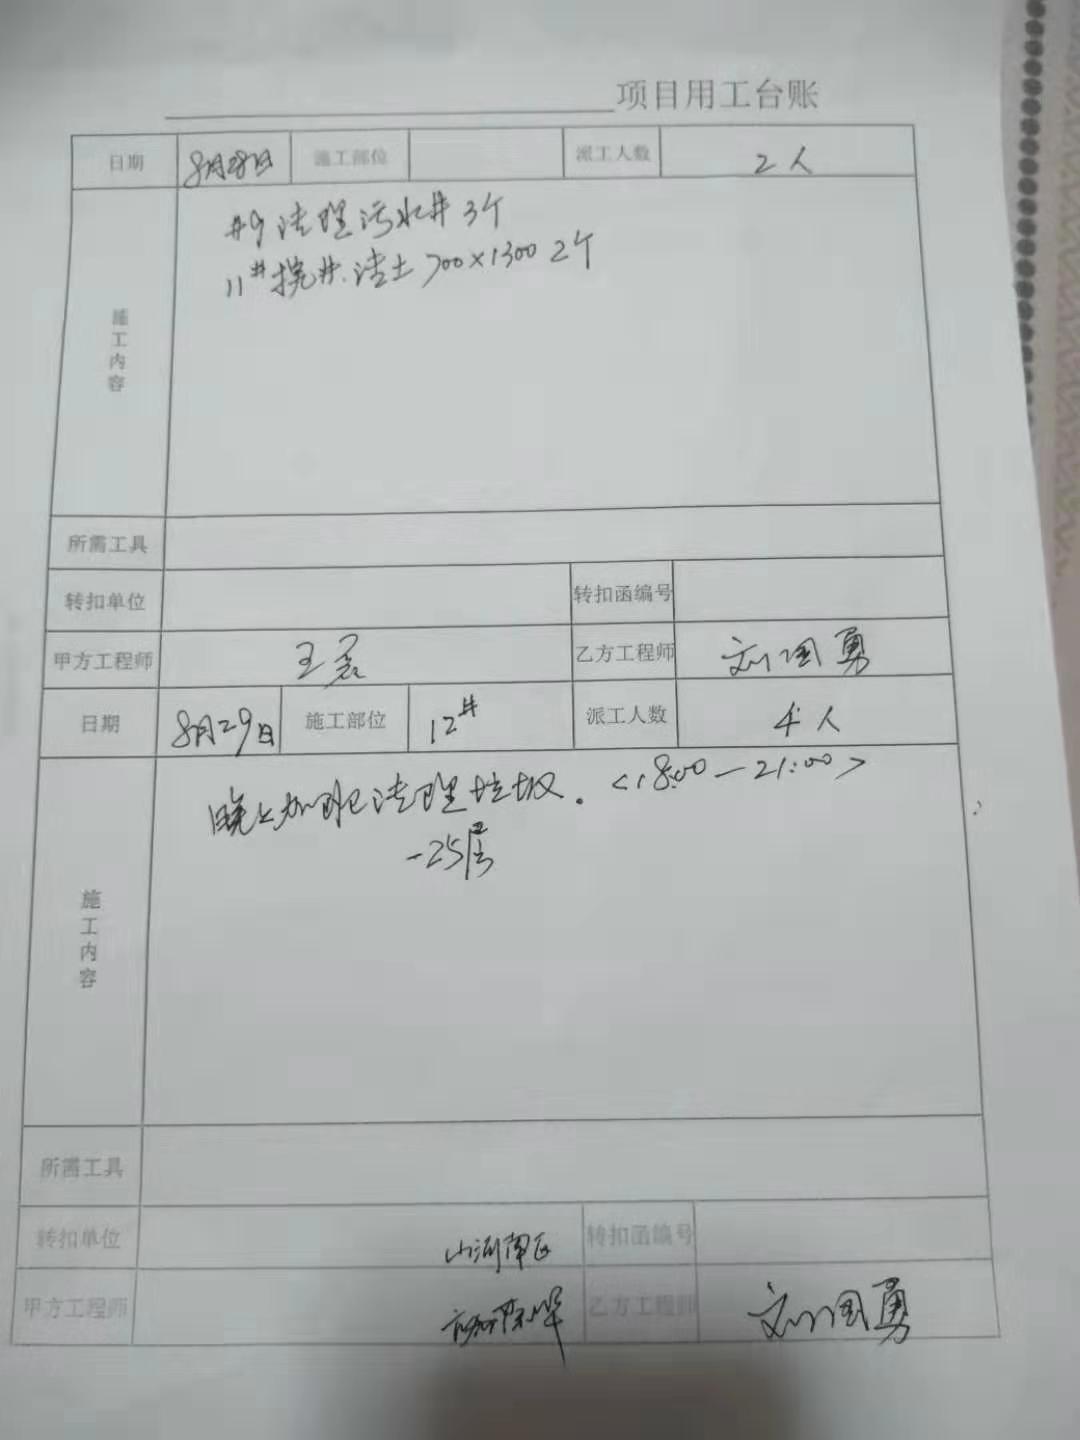 项目用工台账
日期 8月28日 施工部位 派工人数 2人
施工内容
#9清理污水井3个
11#挖井.清土700×1300 2个
所需工具
转扣单位 转扣函编号
甲方工程师 王 乙方工程师 刘国勇
日期 8月29日 施工部位 12# 派工人数 4人
施工内容
晚上加班清理垃圾. <18:00—21:00>
-25层
所需工具
转扣单位 山河南区 转扣函编号
甲方工程师 乙方工程师 刘国勇